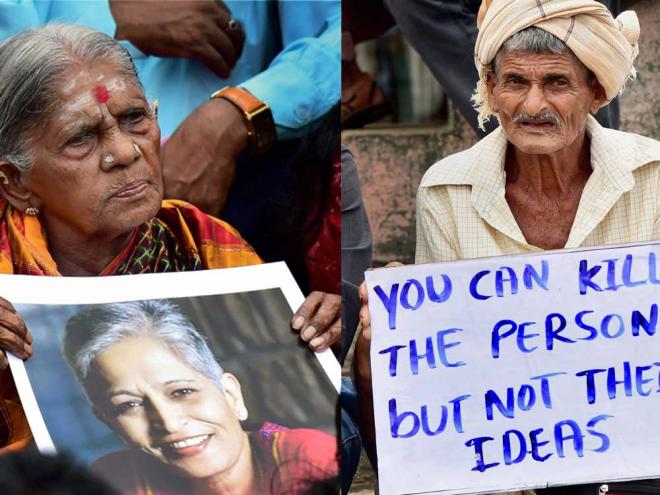 YOU CAN KILL
THE PERSON
BUT NOT THEI
IDEAS